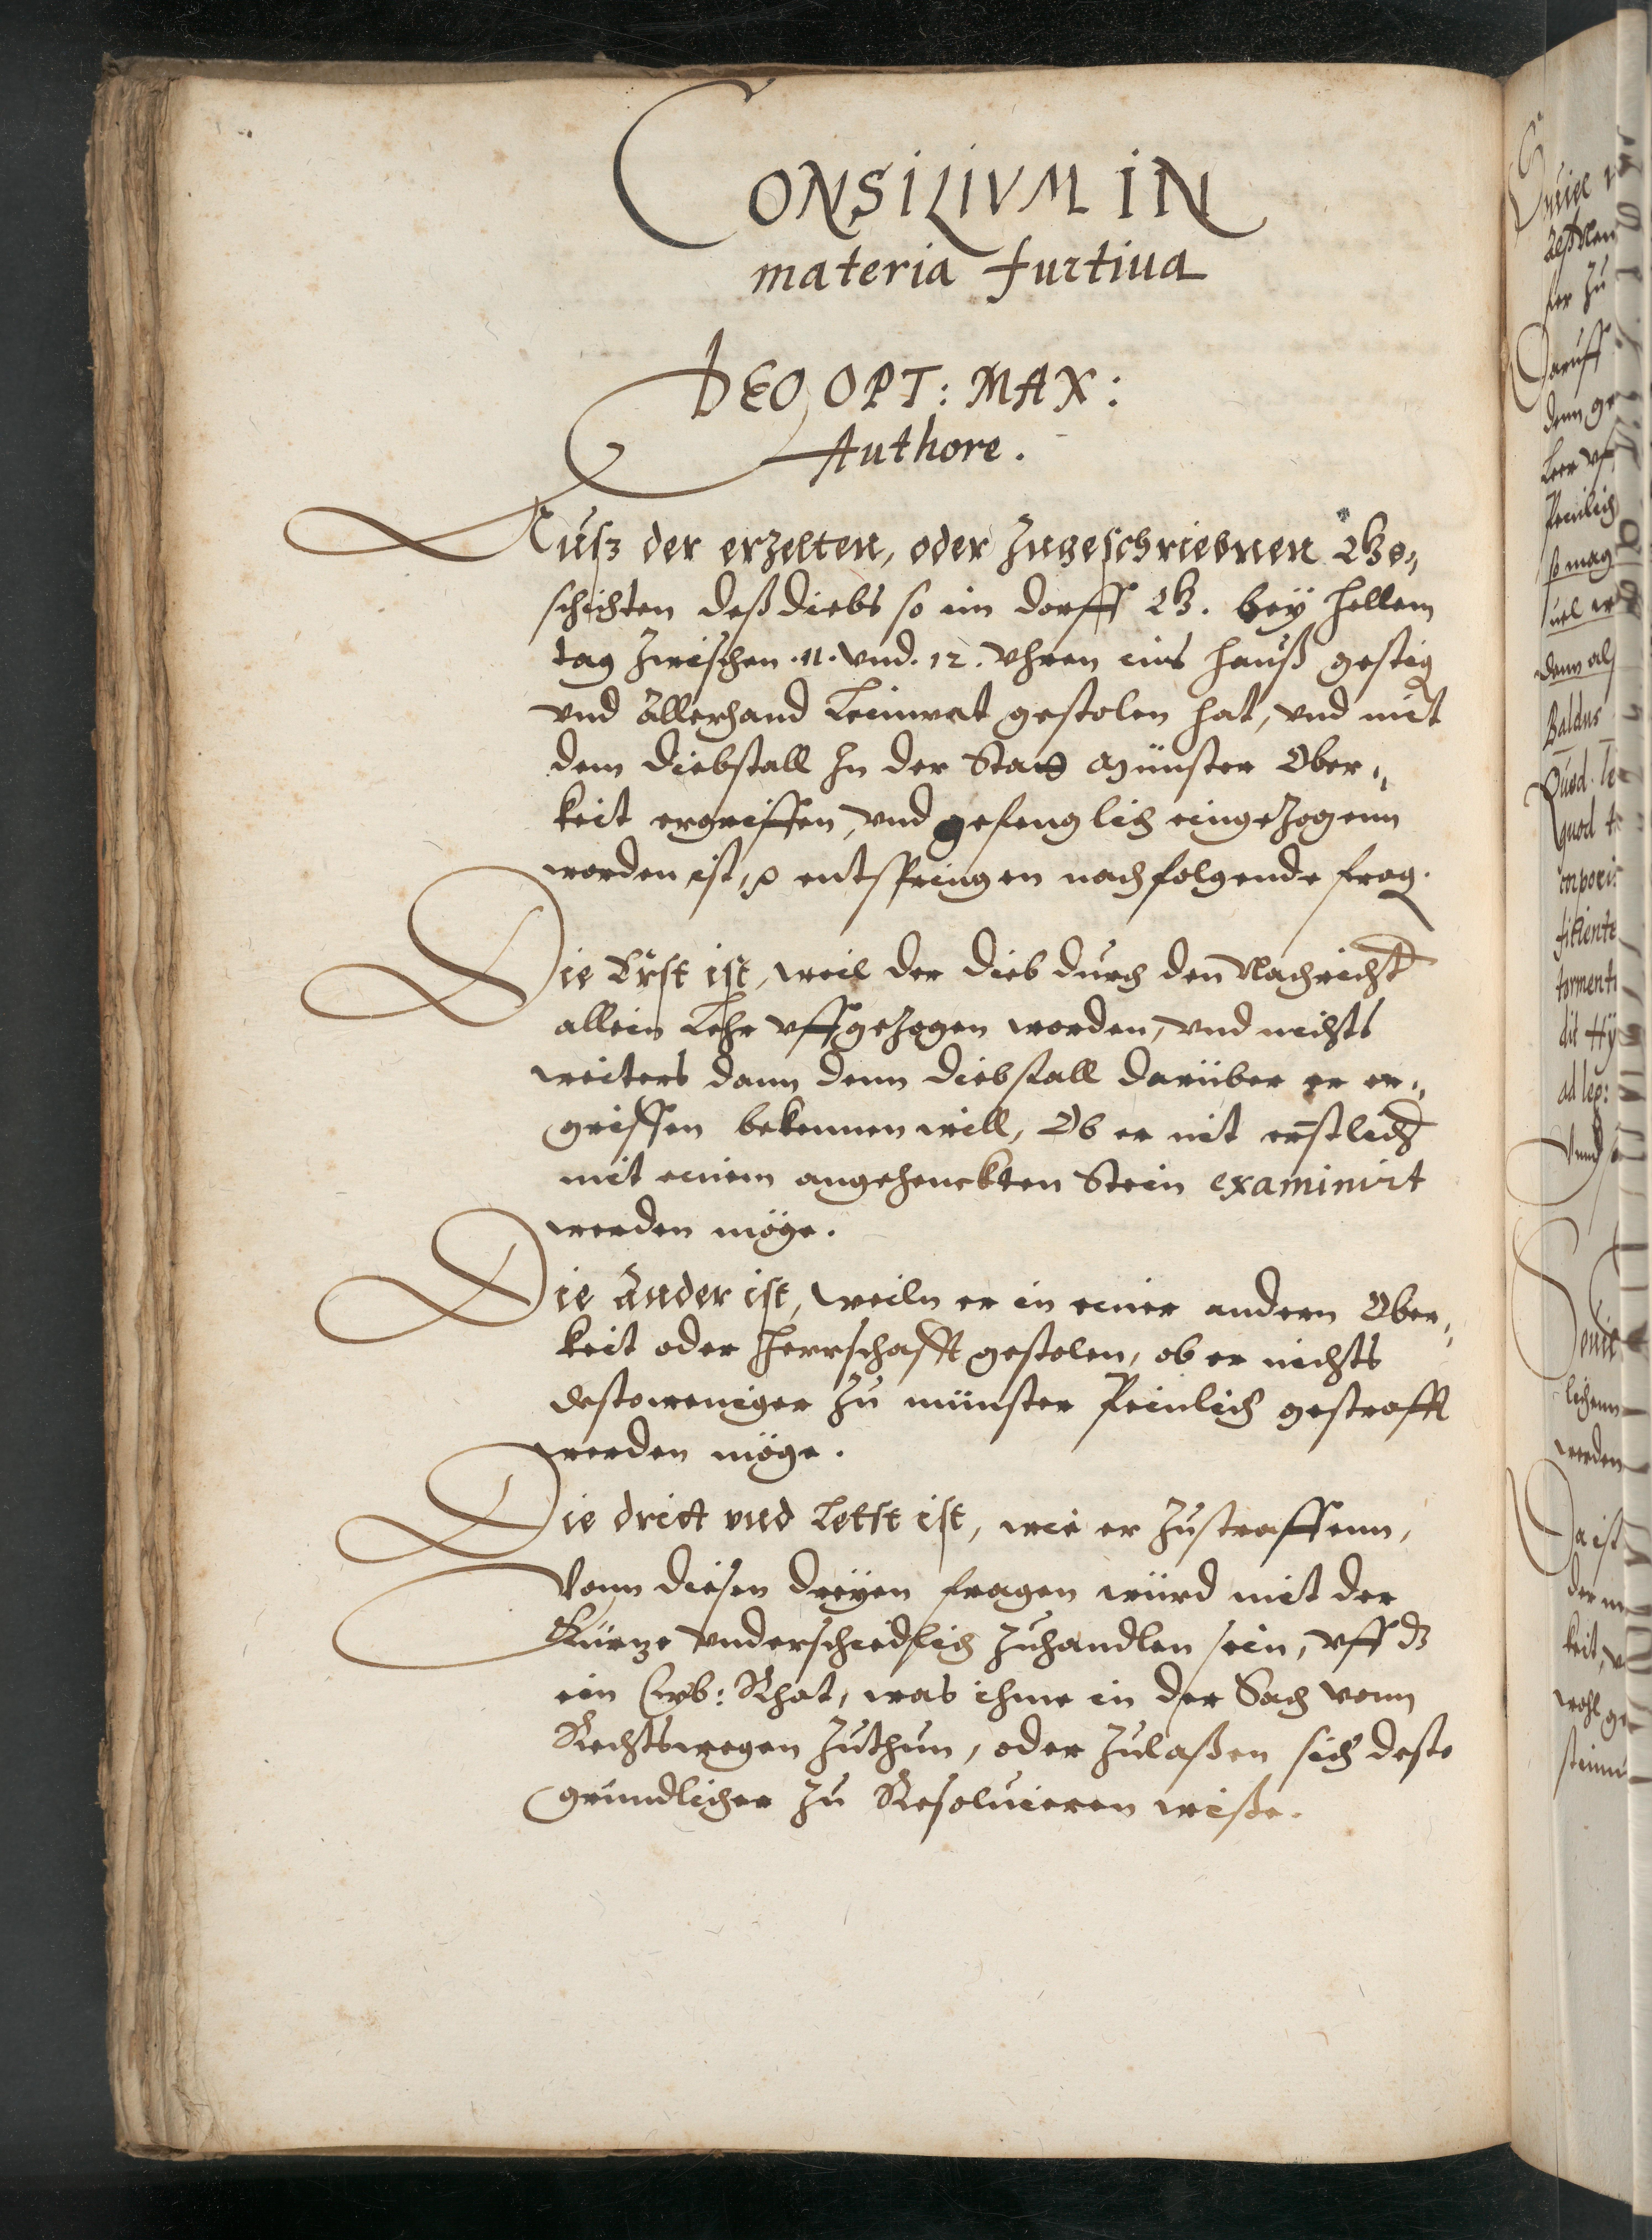 CONSILIVM IN
materia furtiua
DEO OPT: MAX:
Authore.
Ausz der erzelten, oder Zugeschriebnen Ge„
schichten deß diebs so im dorff G. bey hellem
tag Zwischen .11. vnd .12. Vhren ins hauß gestig
vnd allerhand Leinwat gestolen hat, vnd mit
dem diebstall In der Stat Münster Ober„
keit ergriffen, vnd gefenglich eingeZogenn
worden ist, entspringen nachfolgende frag.
Die Erst ist, weil der dieb durch den Nachricht
allein Lehr vffgeZogen worden, vnd nichts
weiters dann denn diebstall darüber er er„
griffen bekennen will, Ob er nit ernstlich
mit einem angehenckten Stein examinirt
werden möge.
Die Ander ist, weiln er in einer andern Ober„
keit oder Herrschafft gestolen, ob er nichts
destoweniger Zu münster Peinlich gestrafft
werden möge.
Die dritt vnd Letst ist, wie er Zustraffenn,
Vonn diesen dreyen fragen würd mit der
Kürtze vnderschiedlich Zuhandlen sein, vff dz
ein Erb: Rhat, was ihme in der Sach vonn
Rechtswegen Zuthun, oder Zulaßen sich deste
gründlicher Zu Resoluieren wiße.
Daruff
so mag
Baldus
Quod
quod
torment
ad leg:
Vnnd
werden
Da ist
keit,
wohl